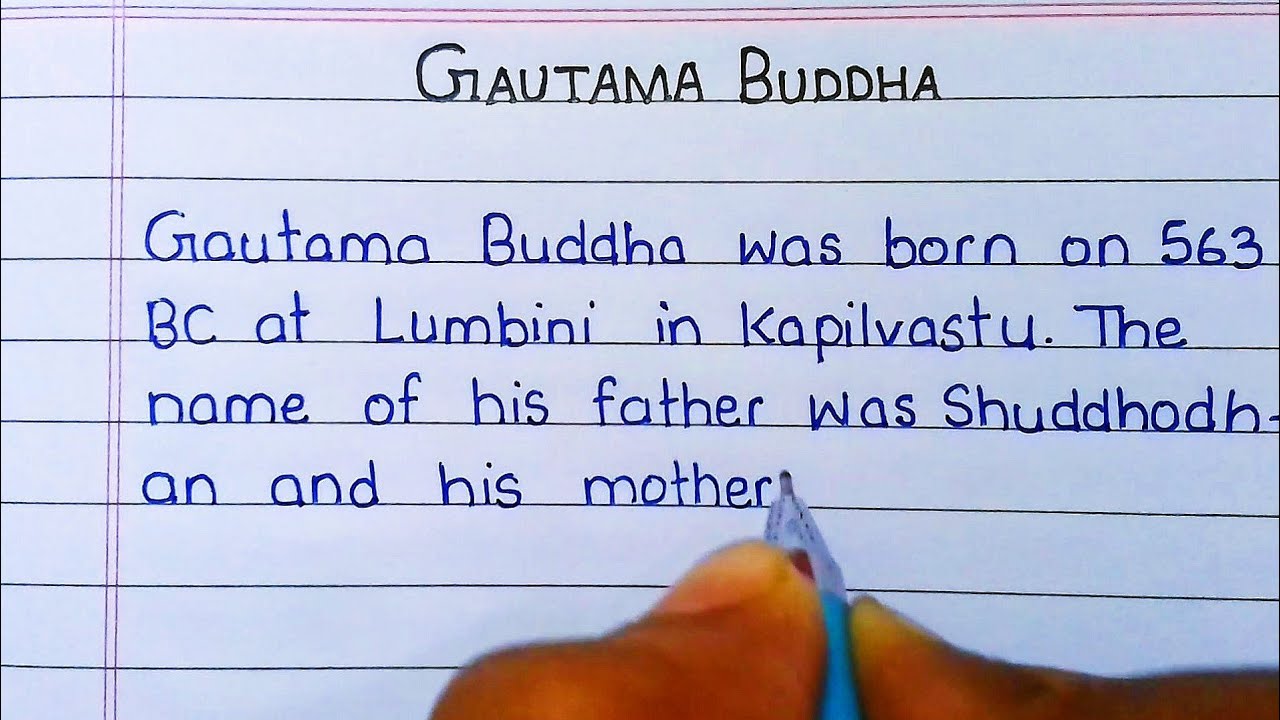 GAUTAMA BUDDHA
Gautama Buddha was born on 563
BC at Lumbini in Kapilvastu. The
name of his father was Shuddhodh-
an and his mother